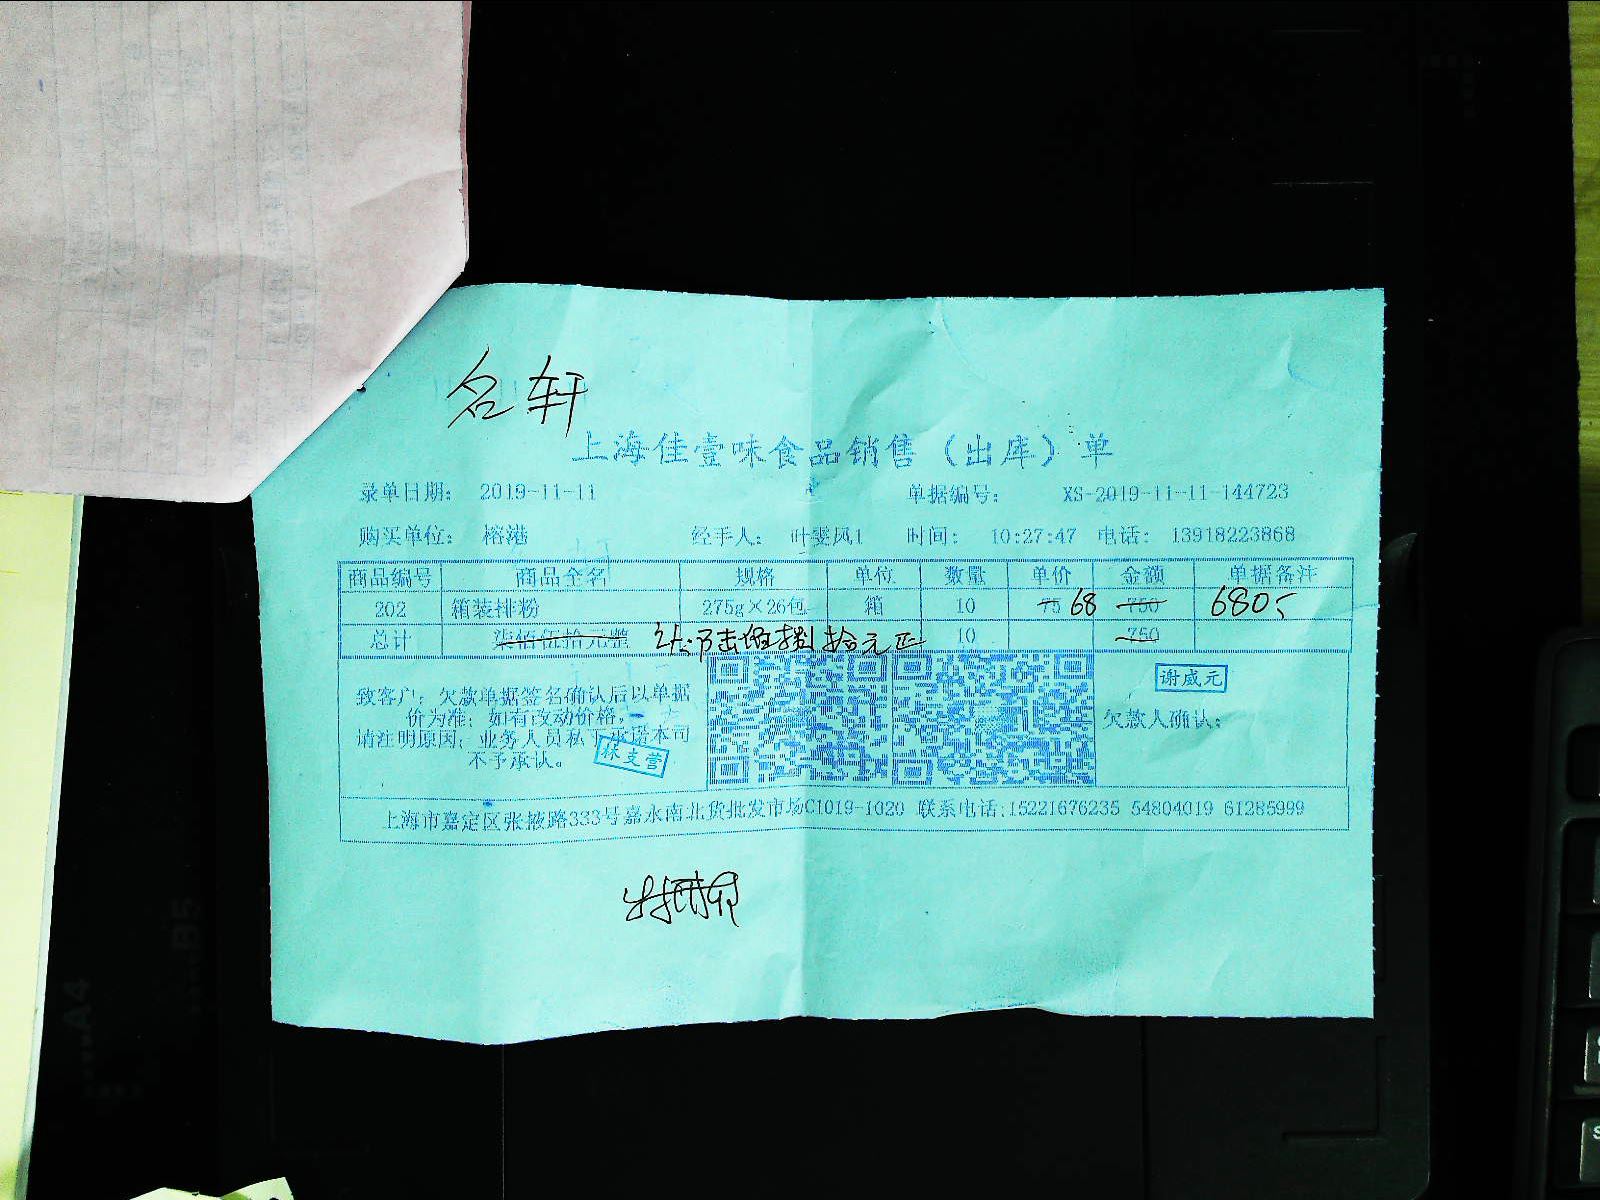 名轩
上海佳壹味食品销售（出库）单
录单日期： 2019-11-11 单据编号： XS-2019-11-11-144723
购买单位： 榕港 经手人： 叶雯凤1 时间： 10:27:47 电话： 13918223868
商品编号 商品全名 规格 单位 数量 单价 金额 单据备注
202 箱装排粉 275g×26包 箱 10 75 68 750 680
总计 柒佰伍拾元整 陆佰捌拾元正 10 750
致客户：欠款单据签名确认后以单据
价为准；如有改动价格，
请注明原因；业务人员私下承诺本司
不予承认。
林支营
谢威元
欠款人确认：
上海市嘉定区张掖路333号嘉永南北货批发市场C1019-1020 联系电话:15221676235 54804019 61285999
A4
B5